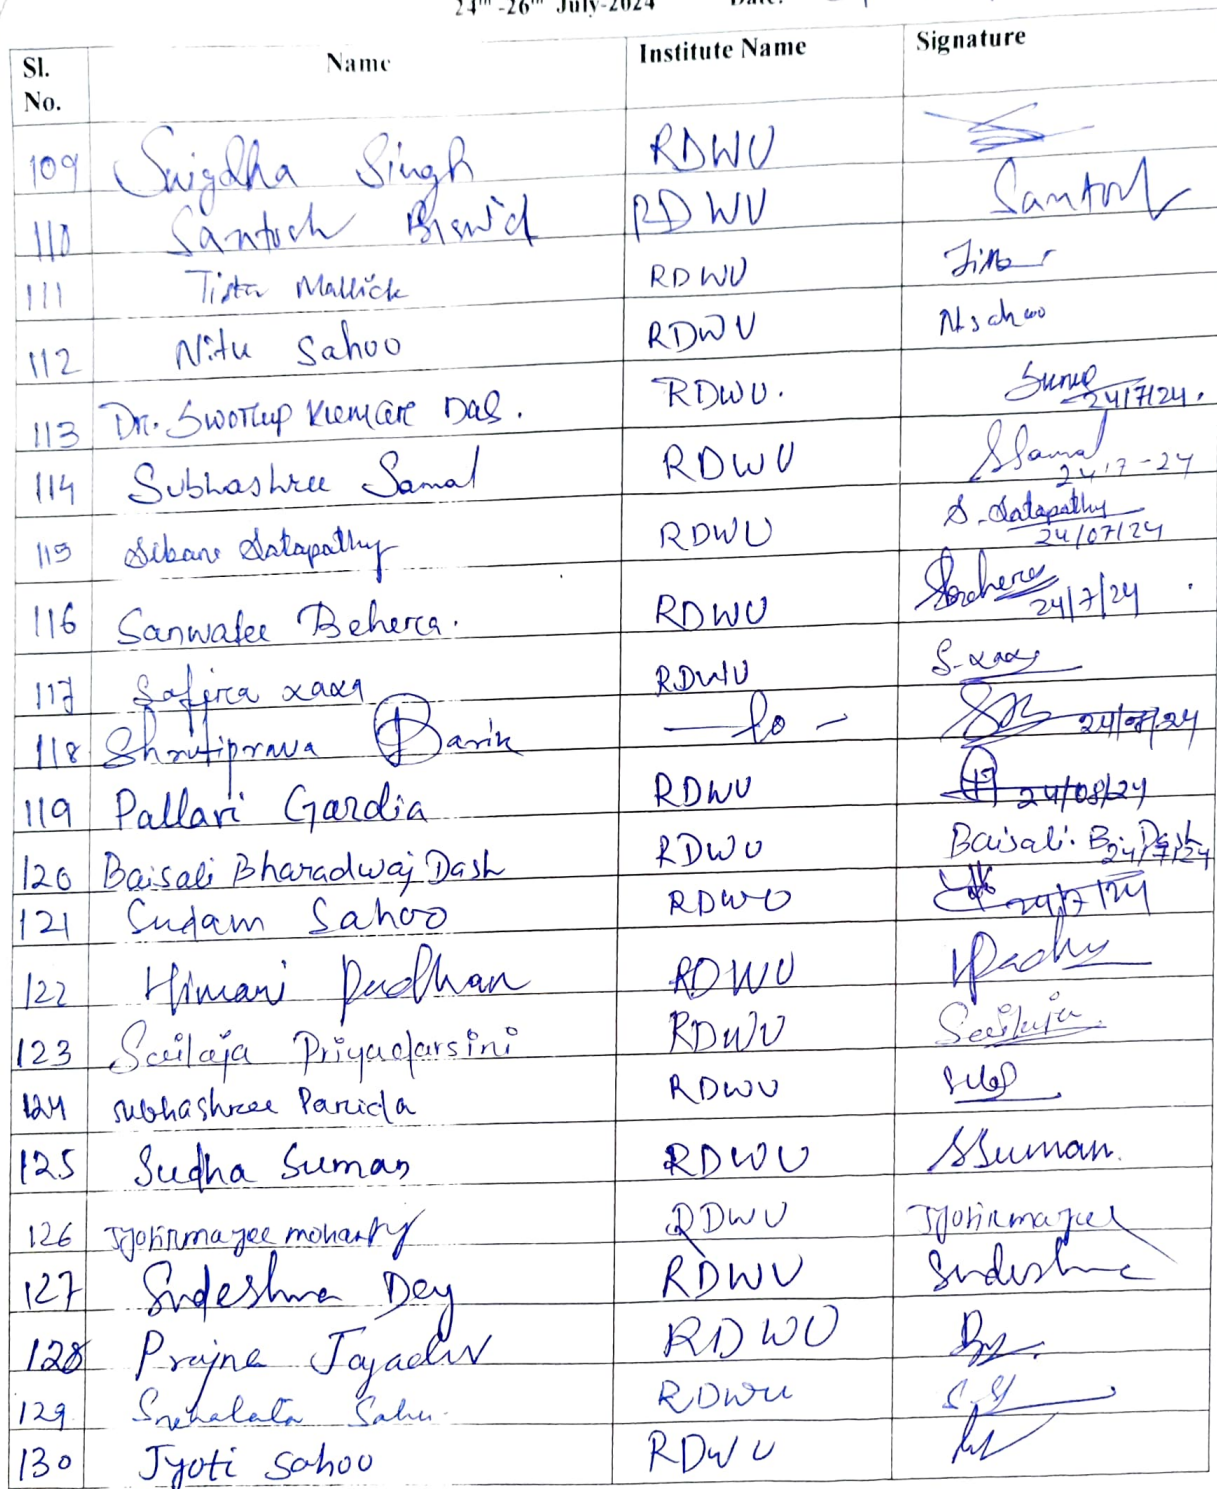 24th -26th July-2024 Date:
Sl. No. Name Institute Name Signature
109 Snigdha Singh RDWU
110 Santosh RDWU Santosh
111 Tista Mallick RDWU Tista
112 Nitu Sahoo RDWU Nsahoo
113 Dr. Sworup Kumar Das. RDWU. 24/7/24.
114 Subhashree Samal RDWU SSamal 24.7-24
115 Satapathy RDWU S. Satapathy 24/07/24
116 Sanwalee Behera. RDWU 24/7/24
117 Safira xaxa RDWU S-xaxa
118 Shrutiprava Barik —Do— 24/08/24
119 Pallavi Gardia RDWU 24/08/24
120 Baisali Bharadwaj Dash RDWU Baisali. B. Dash 24/7/24
121 Sudam Sahoo RDWU 24/7/24
122 Himani Pradhan RDWU
123 Sailaja Priyadarsini RDWU Sailaja
124 Subhashree Parida RDWU
125 Sudha Suman RDWU SSuman.
126 Jyotirmayee mohanty RDWU Jyotirmayee
127 Sudeshna Dey RDWU Sudeshna
128 Prajna Jayadev RDWU
129 Snehalata Sahu. RDWU
130 Jyoti Sahoo RDWU